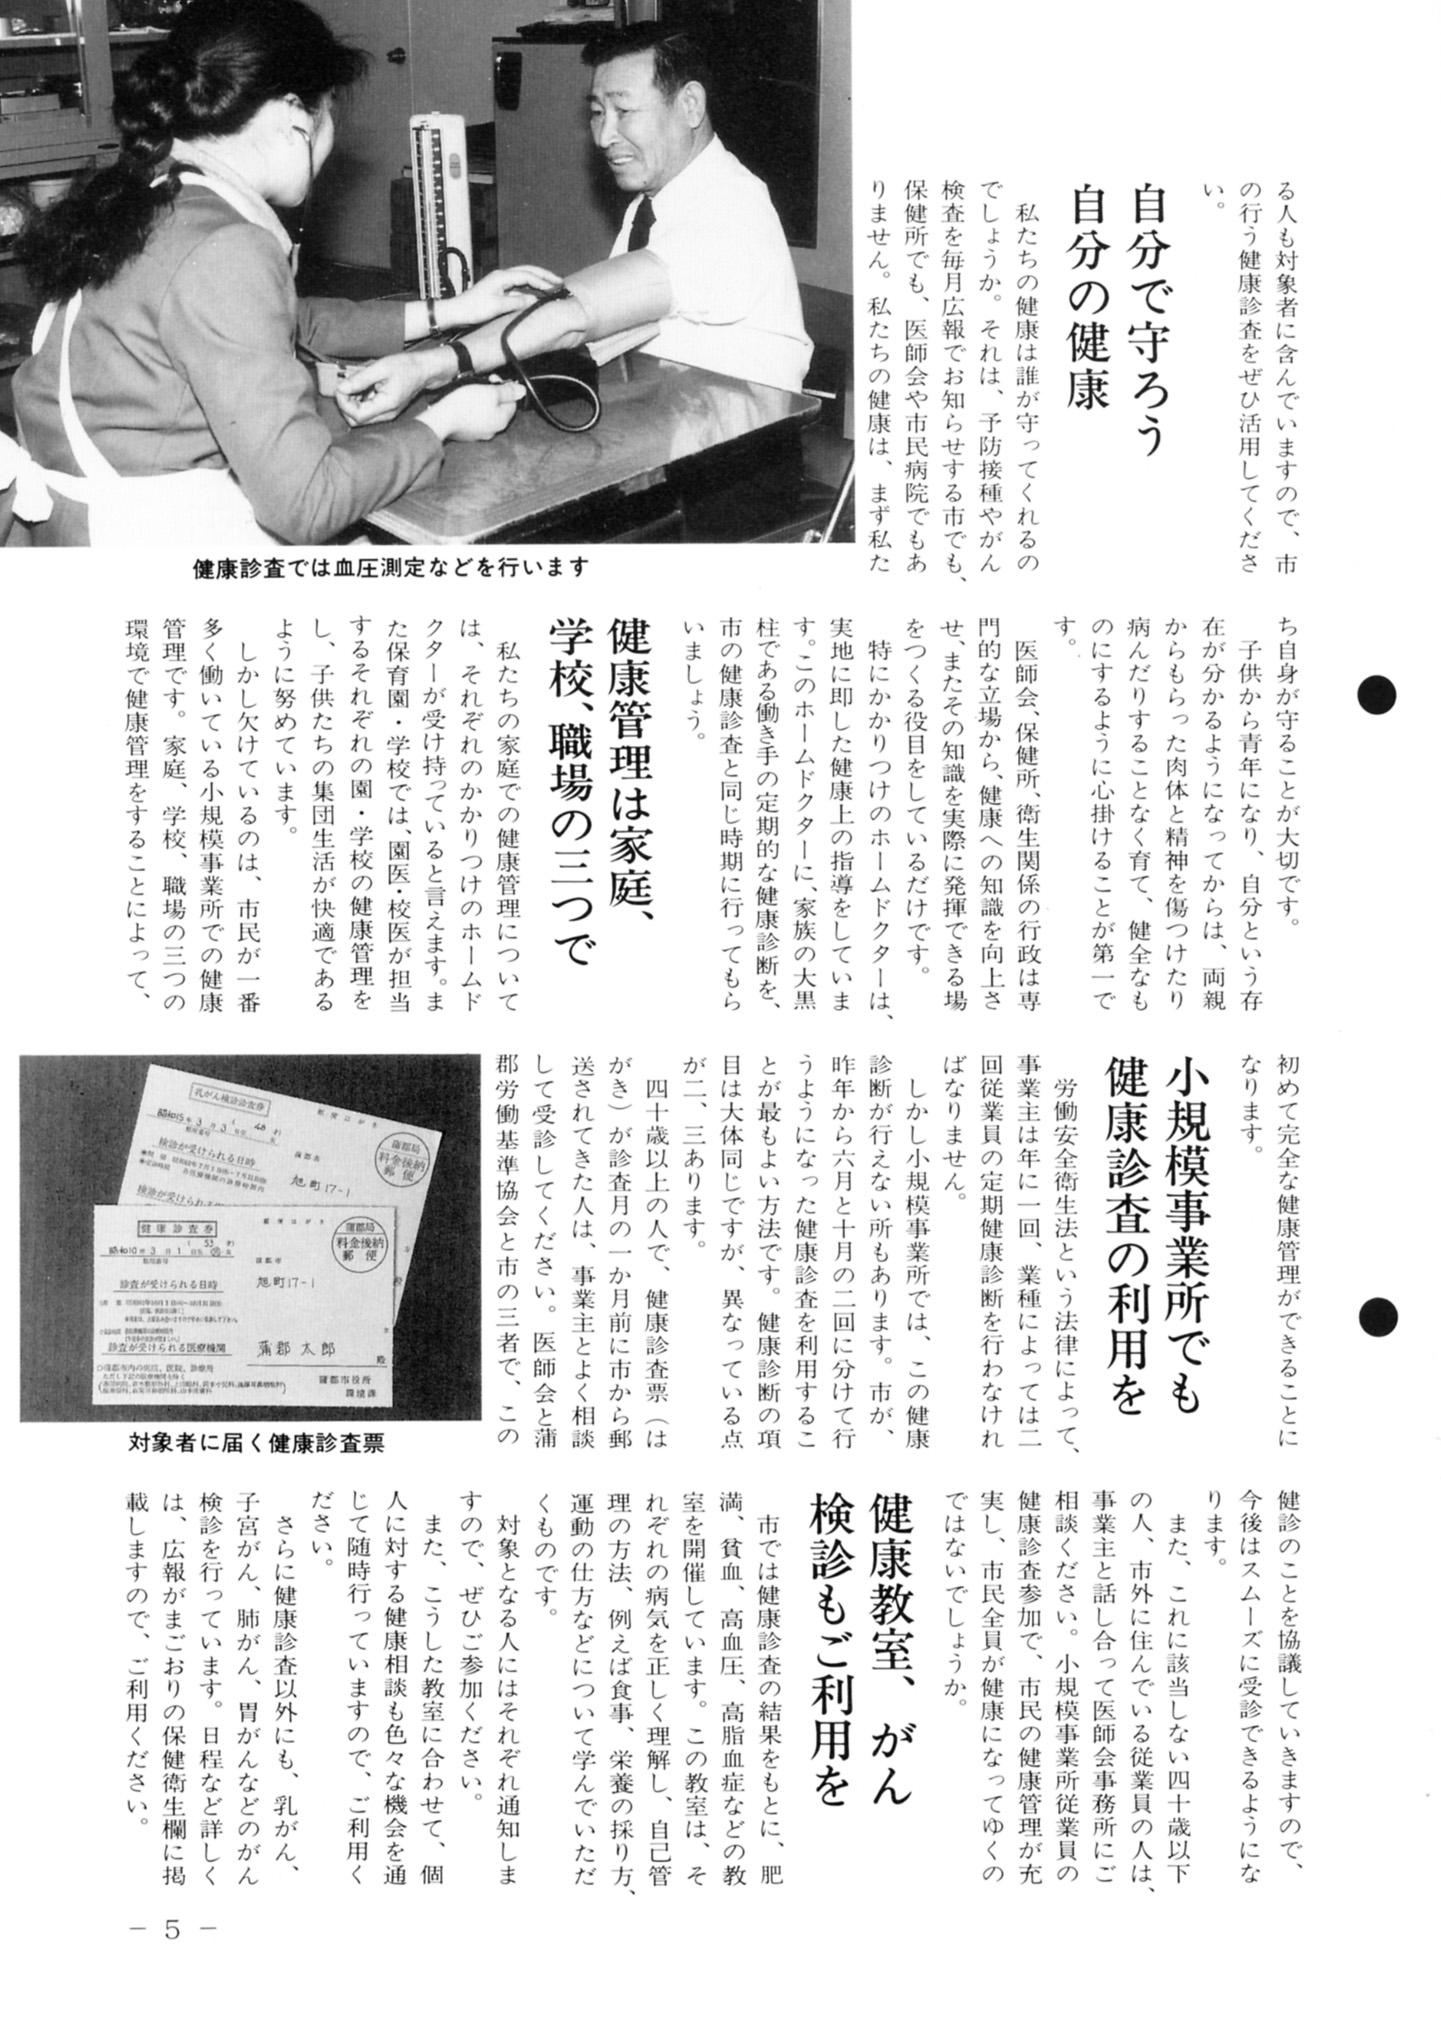 る人も対象者に含んでいますので、市
の行う健康診査をぜひ活用してくださ
い。
自分で守ろう
自分の健康
私たちの健康は誰が守ってくれるの
でしょうか。それは、予防接種やがん
検査を毎月広報でお知らせする市でも、
保健所でも、医師会や市民病院でもあ
りません。私たちの健康は、まず私た
健康診査では血圧測定などを行います
ち自身が守ることが大切です。
子供から青年になり、自分という存
在が分かるようになってからは、両親
からもらった肉体と精神を傷つけたり
病んだりすることなく育て、健全なも
のにするように心掛けることが第一で
す。
医師会、保健所、衛生関係の行政は専
門的な立場から、健康への知識を向上さ
せ、またその知識を実際に発揮できる場
をつくる役目をしているだけです。
特にかかりつけのホームドクターは、
実地に即した健康上の指導をしていま
す。このホームドクターに、家族の大黒
柱である働き手の定期的な健康診断を、
市の健康診査と同じ時期に行ってもら
いましょう。
健康管理は家庭、
学校、職場の三つで
私たちの家庭での健康管理について
は、それぞれのかかりつけのホームド
クターが受け持っていると言えます。ま
た保育園・学校では、園医・校医が担当
するそれぞれの園・学校の健康管理を
し、子供たちの集団生活が快適である
ように努めています。
しかし欠けているのは、市民が一番
多く働いている小規模事業所での健康
管理です。家庭、学校、職場の三つの
環境で健康管理をすることによって、
初めて完全な健康管理ができることに
なります。
小規模事業所でも
健康診査の利用を
労働安全衛生法という法律によって、
事業主は年に一回、業種によっては二
回従業員の定期健康診断を行わなけれ
ばなりません。
しかし小規模事業所では、この健康
診断が行えない所もあります。市が、
昨年から六月と十月の二回に分けて行
うようになった健康診査を利用するこ
とが最もよい方法です。健康診断の項
目は大体同じですが、異なっている点
が二、三あります。
四十歳以上の人で、健康診査票（は
がき）が診査月の一か月前に市から郵
送されてきた人は、事業主とよく相談
して受診してください。医師会と蒲
郡労働基準協会と市の三者で、この
乳がん検診診査券
郵便はがき
検診が受けられる日時
旭町17-1
蒲郡局
料金後納
郵便
健康診査券
郵便はがき
昭和10年3月1日
蒲郡市
旭町17-1
蒲郡局
料金後納
郵便
診査が受けられる日時
診査が受けられる医療機関
蒲郡太郎
殿
蒲郡市役所
環境課
対象者に届く健康診査票
健診のことを協議していきますので、
今後はスムーズに受診できるようにな
ります。
また、これに該当しない四十歳以下
の人、市外に住んでいる従業員の人は、
事業主と話し合って医師会事務所にご
相談ください。小規模事業所従業員の
健康診査参加で、市民の健康管理が充
実し、市民全員が健康になってゆくの
ではないでしょうか。
健康教室、がん
検診もご利用を
市では健康診査の結果をもとに、肥
満、貧血、高血圧、高脂血症などの教
室を開催しています。この教室は、そ
れぞれの病気を正しく理解し、自己管
理の方法、例えば食事、栄養の採り方、
運動の仕方などについて学んでいただ
くものです。
対象となる人にはそれぞれ通知しま
すので、ぜひご参加ください。
また、こうした教室に合わせて、個
人に対する健康相談も色々な機会を通
じて随時行っていますので、ご利用く
ださい。
さらに健康診査以外にも、乳がん、
子宮がん、肺がん、胃がんなどのがん
検診を行っています。日程など詳しく
は、広報がまごおりの保健衛生欄に掲
載しますので、ご利用ください。
－ 5 －